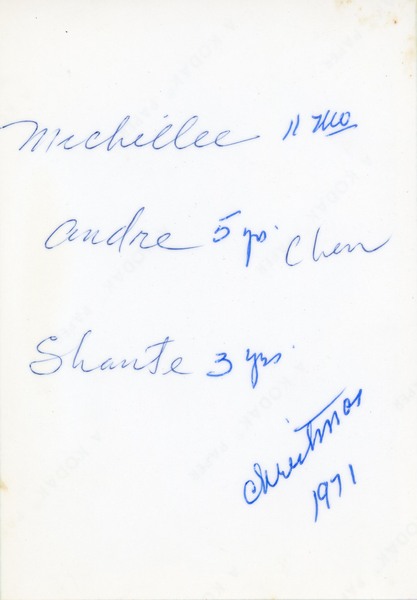 Michellee 11 Mo
Andre 5 yrs. Cheri
Shante 3 yrs.
Christmas
1971